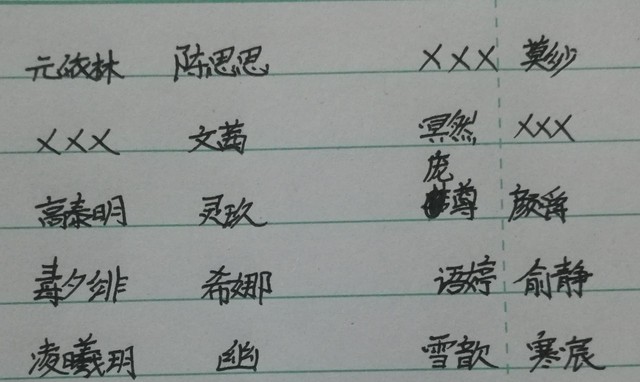 元依林 陈思思 XXX 莫纱
XXX 文茜 冥然 XXX
高泰明 灵玖 庞尊 颜爵
毒夕绯 希娜 语婷 俞静
凌曦玥 幽 雪歆 寒宸